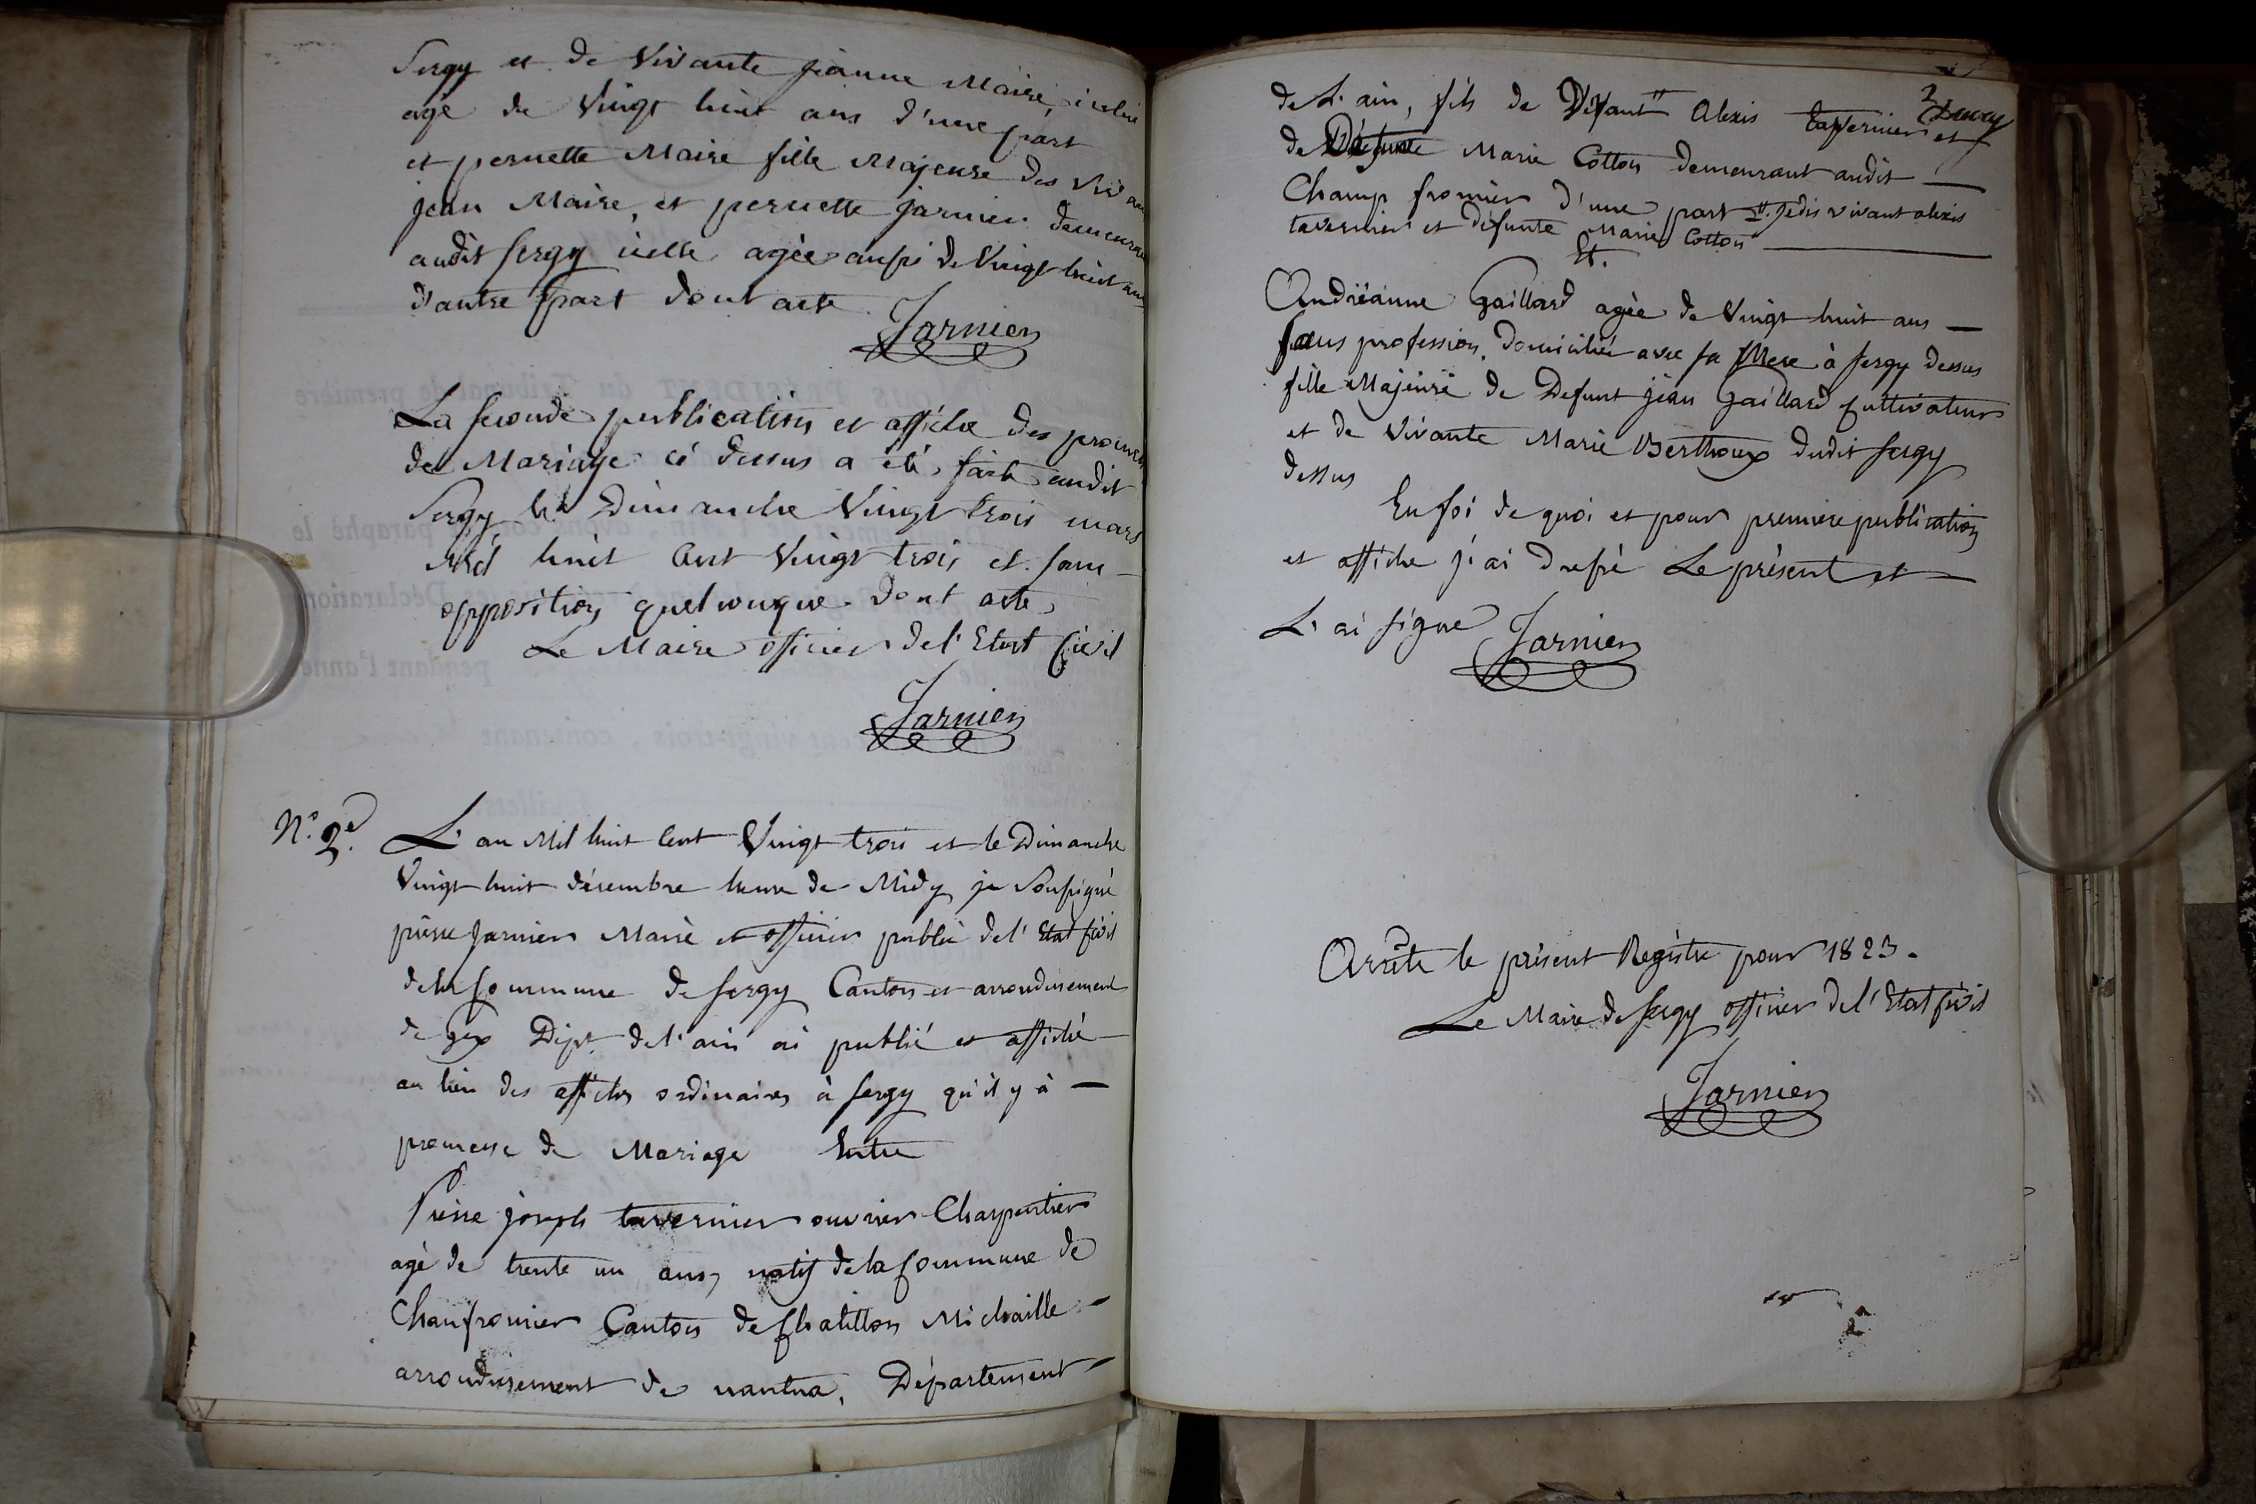 Sergy et de Vivante jeanne Maire, icelui
agé de Vingt huit ans d'une part
et pernette Maire fille Majeure des Viv
jean Maire, et pernette jarnier demeurant
audit Sergy icelle agée aussi de Vingt huit ans
d'autre part dont acte
Jarnier
La seconde publication et affiche des promesses
de Mariage ci dessus a été faite audit
Sergy le Dimanche Vingt trois mars
Mil huit Cent Vingt trois et sans
opposition quelconque dont acte
Le Maire officier de l'Etat Civil
Jarnier
N.° 2.e
L'an Mil huit Cent Vingt trois et le Dimanche
Vingt huit décembre heure de Midy je Soussigné
pierre Jarnier Maire et officier public de l'Etat Civil
de la Commune de Sergy Canton et arrondissement
de gex Dépt. de l'ain ai publié et affiché
au lieu des affiches ordinaires à Sergy qu'il y à —
promesse de Mariage Entre
Pierre joseph tavernier ouvrier Charpentier
agé de trente un ans, natif de la Commune de
Chanfromier Canton de Chatillon Michaille
arrondissement de nantua, Département
2
de L'ain, fils de Défunt Alexis tavernier et
de Défunte Marie Cotton demeurant audit —
Champ fromier d'une part # je dis vivant alexis
tavernier et défunte Marie Cotton —
Et.
Andréanne Gaillard agée de Vingt huit ans —
Sans profession, Domiciliée avec sa Mere à Sergy dessus
fille Majeure de Defunt jean Gaillard Cultivateur
et de Vivante Marie Berthoux dudit Sergy
dessus
En foi de quoi et pour premiere publication
et affiche j'ai dressé Le présent et —
L'ai signé Jarnier
Arrêté le présent Régistre pour 1823.
Le Maire de Sergy officier de l'Etat Civil
Jarnier